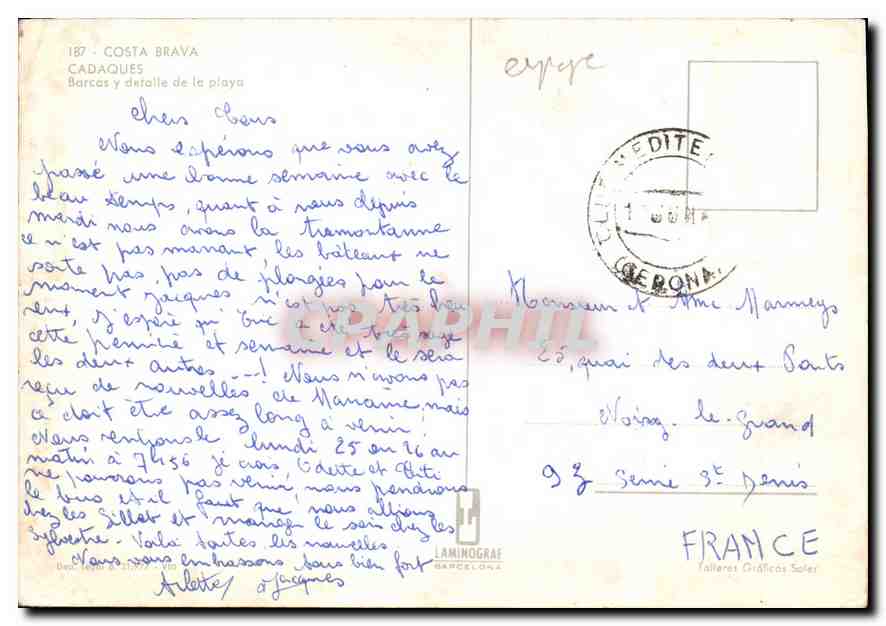 187 - COSTA BRAVA
CADAQUES
Barcas y detalle de la playa
Chers tous
Nous espérons que vous avez
passé une bonne semaine avec le
beau temps, quant à nous depuis
mardi nous avons la tramontanne
ce n'est pas marrant, les bâteaux ne
sorte pas, pas de plongées pour le
moment Jacques n'est pas très heu
reux, j'espère qu'Eric a été très sage
cette première semaine et le sera
les deux autres ---! Nous n'avons pas
reçu de nouvelles de Maname, mais
ça doit être assez long à venir.
Nous rentrons le lundi 25 ou 26 au
matin à 7H56 je crois, Odette et
ne pourrons pas venir, nous prendrons
le bus et il faut que nous allions
chez les Gillot et manger le soir chez les
Sylvestre - Voilà toutes les nouvelles
Nous vous embrassons tous bien fort
Arlette & Jacques
CLUB MEDITE
(GERONA
Monsieur et Mme Marmeys
25, quai des deux Ponts
Noisy-le-grand
93 Seine St Denis
FRANCE
LAMINOGRAF
BARCELONA
Talleres Gráficos Soler
CPAPHIL